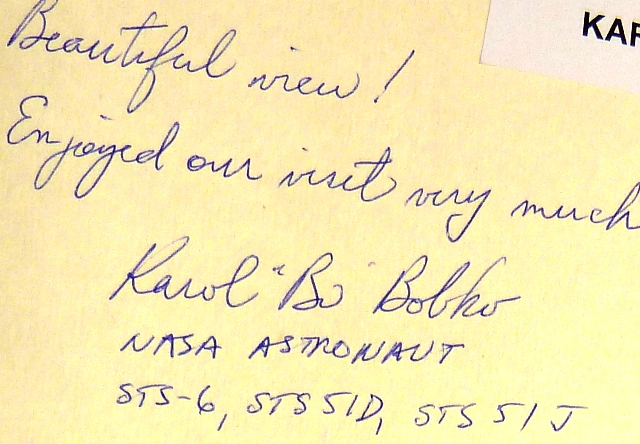 KAR
Beautiful view!
Enjoyed our visit very much
Karol "Bo" Bobko
NASA ASTRONAUT
STS-6, STS 51D, STS 51J